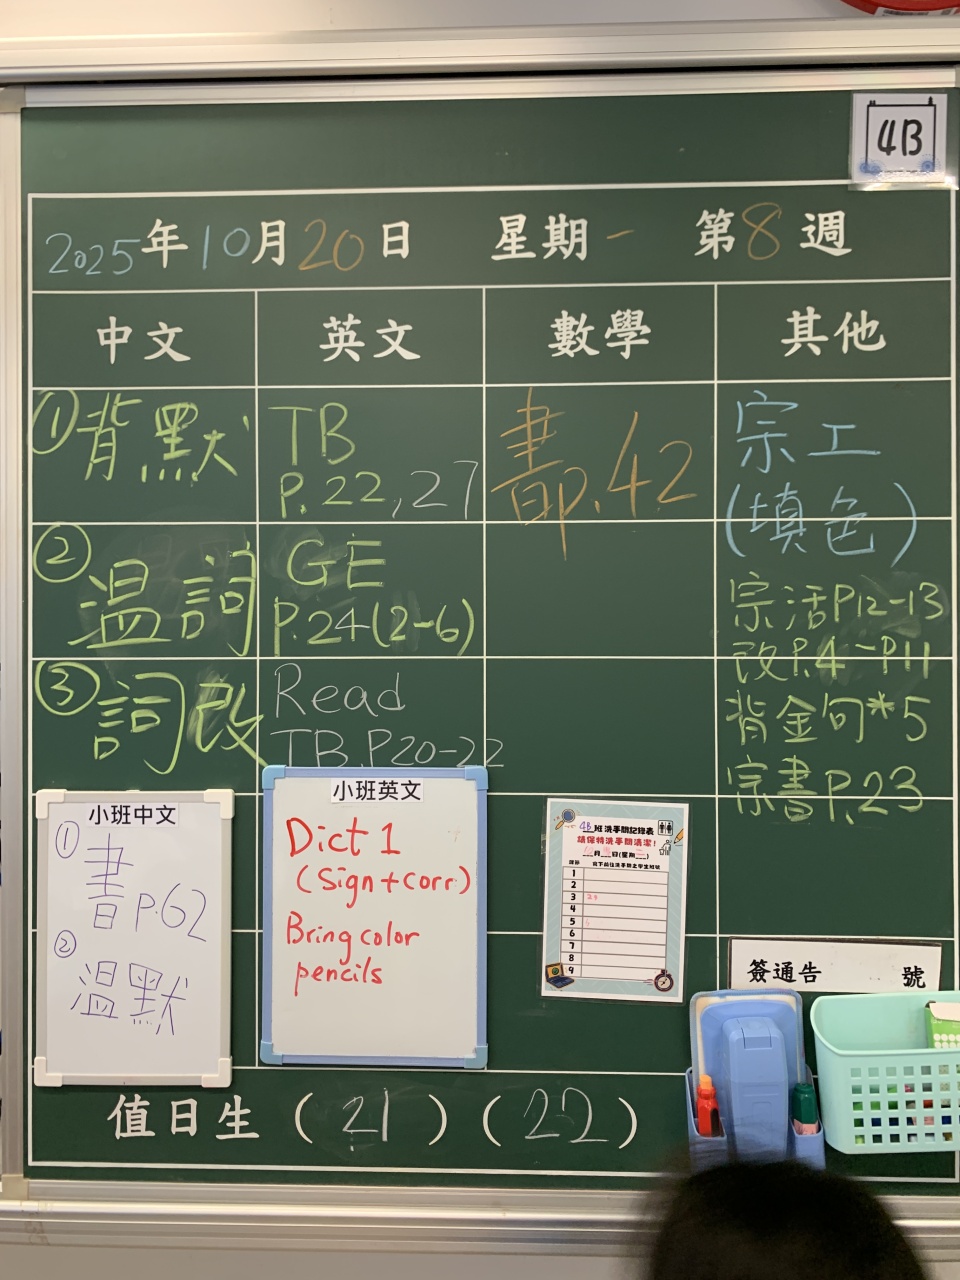 4B
2025年10月20日 星期一 第8週
中文 英文 數學 其他
①背默
②温詞
③詞改
TB
P.22,27
GE
P.24(2-6)
Read
TB.P20-22
書p.42
宗工
(填色)
宗活P12-13
改P.4-P11
背金句*5
宗書P.23
小班中文
①書P.62
②温默
小班英文
Dict 1
(Sign+corr.)
Bring color
pencils
4B班洗手間記錄表
請保持洗手間清潔!
月 日(星期 )
1
2
3 23
4
5
6
7
8
9
簽通告 號
值日生 (21) (22)